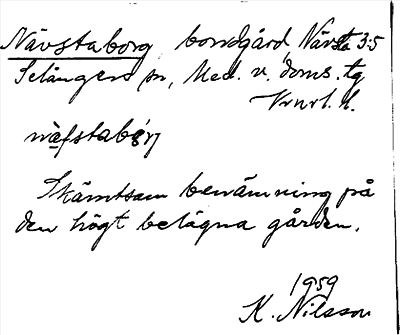 Nävstaborg, bondgård, Nävsta 3:5
Selångers sn, Med. v. doms. tg
Vnrl. h.
näfstabórj
Skämtsam benämning på
den högt belägna gården.
1959
K. Nilsson